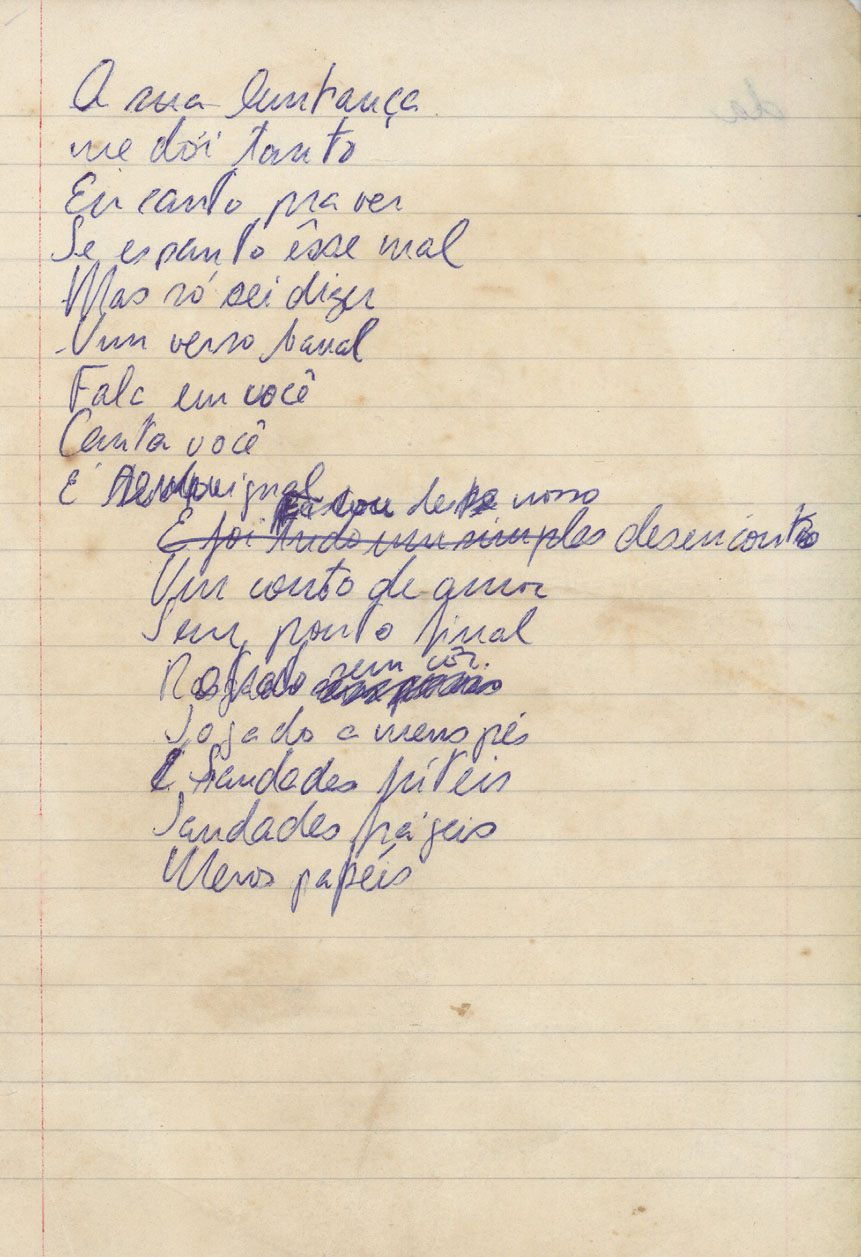 A sua lembrança
me dói tanto
Eu canto pra ver
Se espanto êsse mal
Mas só sei dizer
Um verso banal
Fala em você
Canta você
É sempre igual
Restou deste nosso
E foi tudo um simples desencontro
Um conto de amor
Sem ponto final
Retrato sem côr
Jogado a meus pés
E Saudades fúteis
Saudades frágeis
Meros papéis